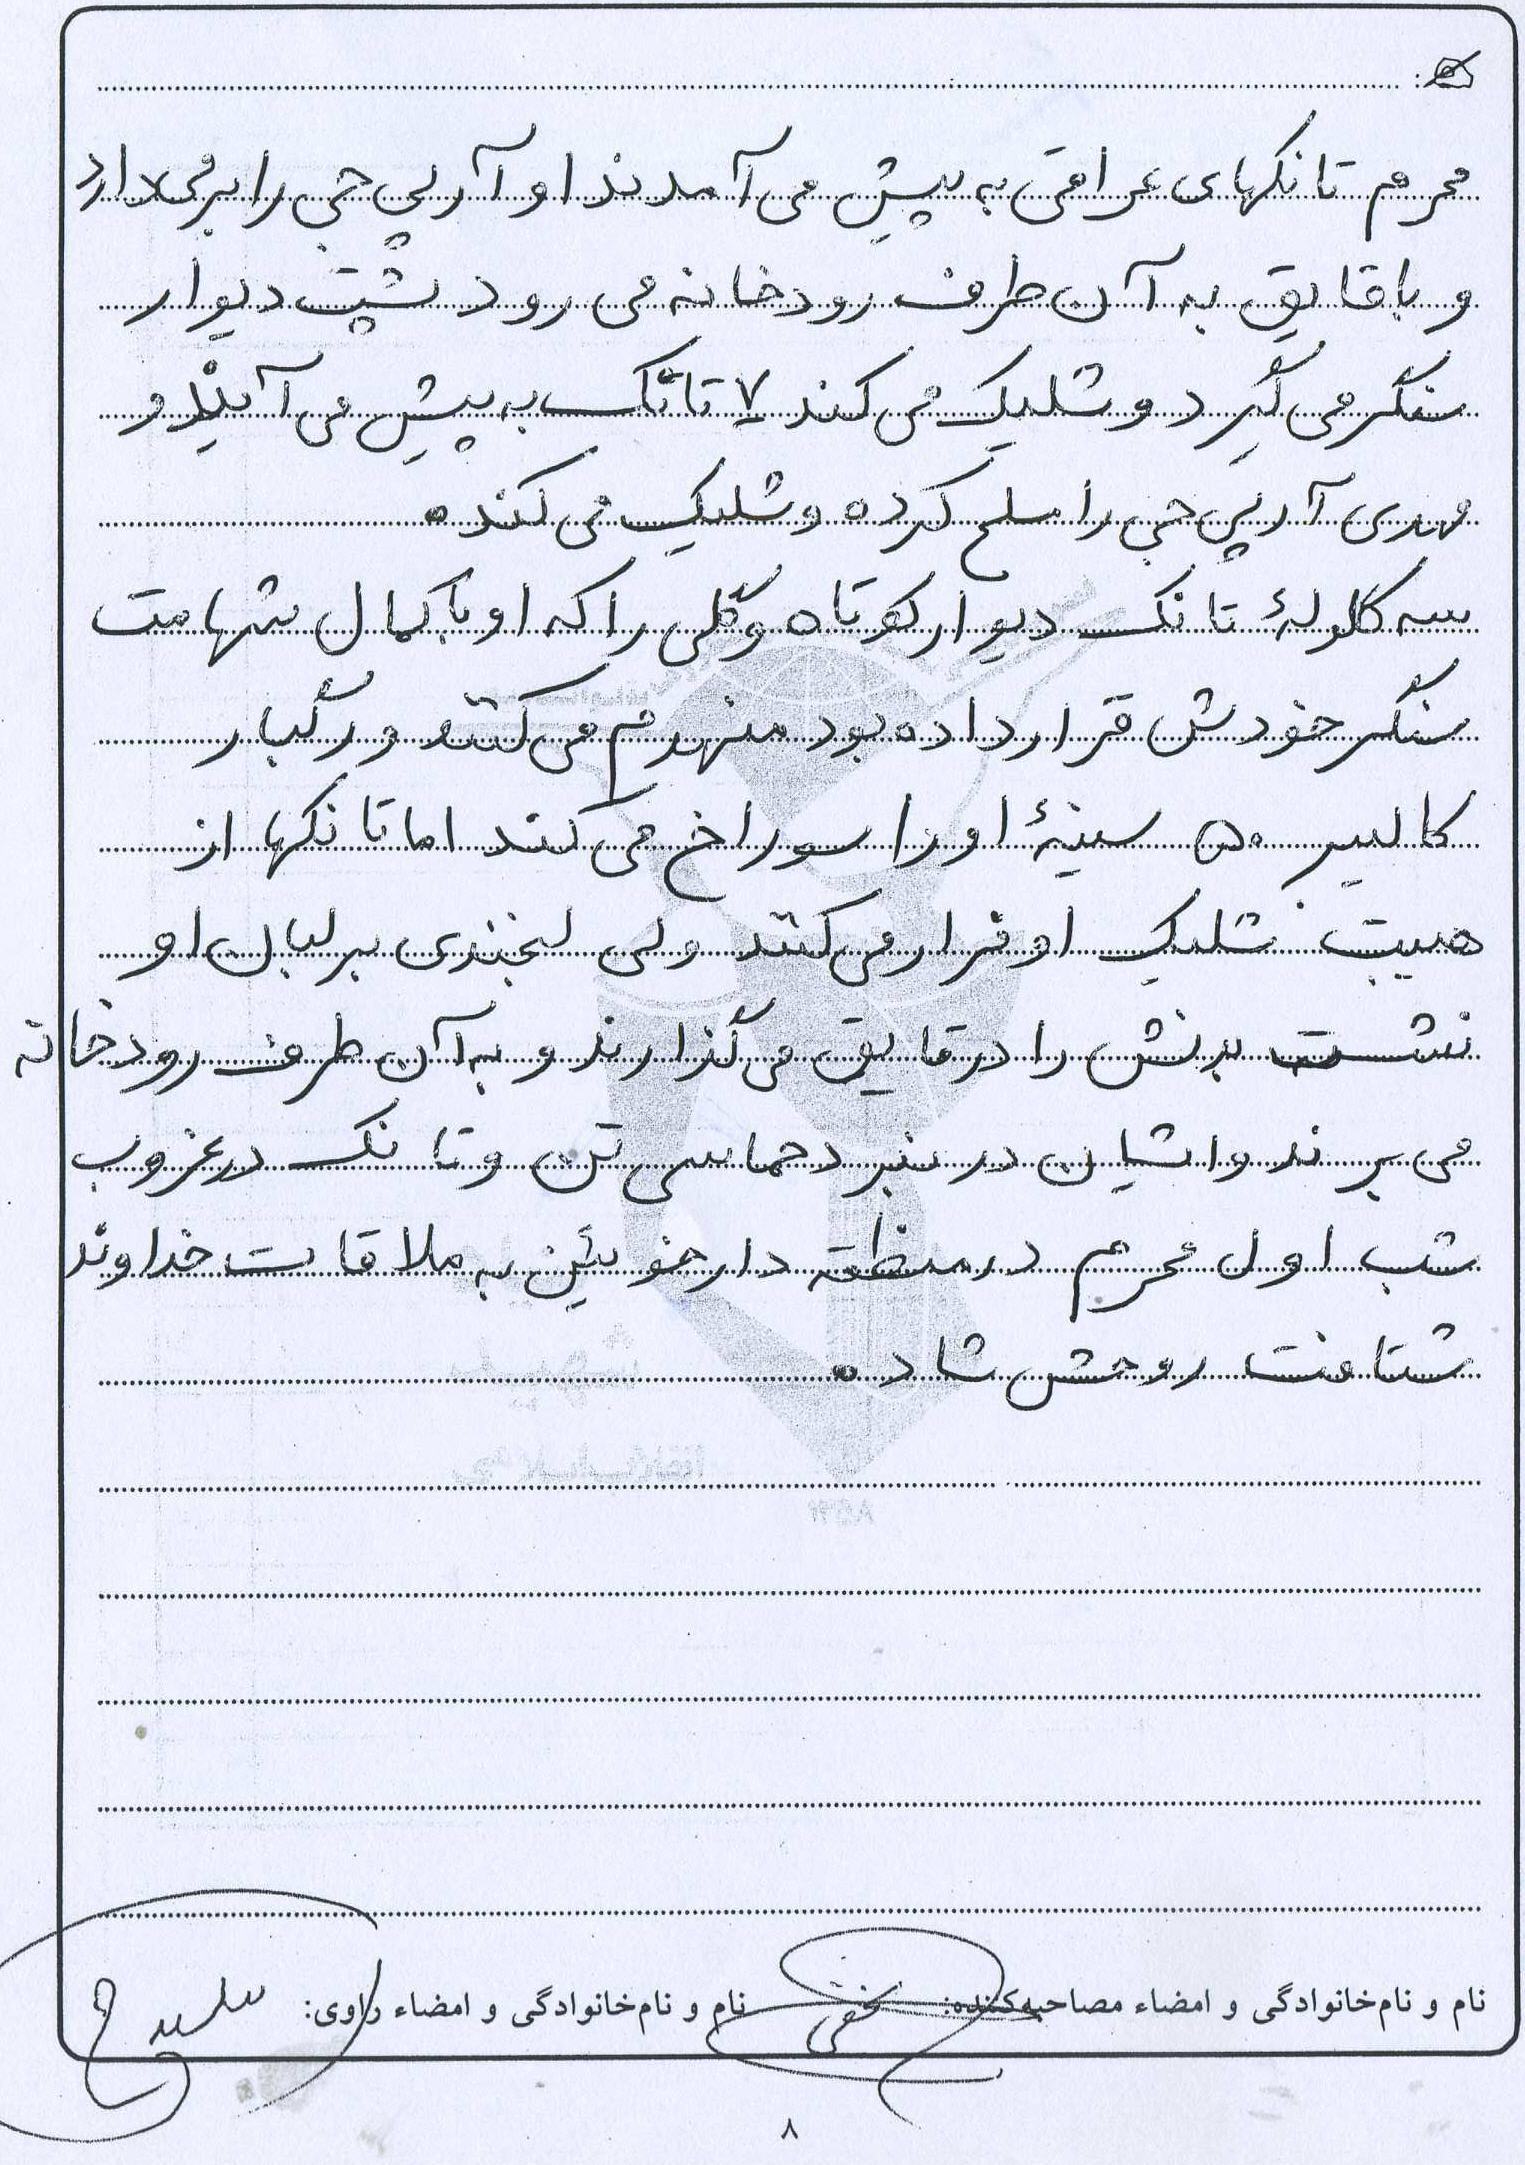 محرم تانکهای عراقی به پیش می آمدند او آرپی جی را برمی دارد
و با قایق به آن طرف رودخانه می رود پشت دیوار
سنگر می گیرد و شلیک می کند ۷ تا تانک به پیش می آیند و
مهدی آرپی جی را مسلح کرده و شلیک می کند.
سه گلولهٔ تانک دیوار کوتاه و گلی را که او با کمال شهامت
سنگر خودش قرار داده بود منهدم می کنند و رگبار
کالیبر ۵۰ سینهٔ او را سوراخ می کند اما تانکها از
هیبت شلیک او فرار می کنند ولی لبخندی بر لبان او
نشست بدنش را در قایق می گذارند و به آن طرف رودخانه
می برند و ایشان در نبرد حماسی تن و تانک در غروب
شب اول محرم در منطقه دارخوئین به ملاقات خداوند
شتافت روحش شاد.
نام و نام‌خانوادگی و امضاء مصاحبه‌کننده: نام و نام‌خانوادگی و امضاء راوی:
۸